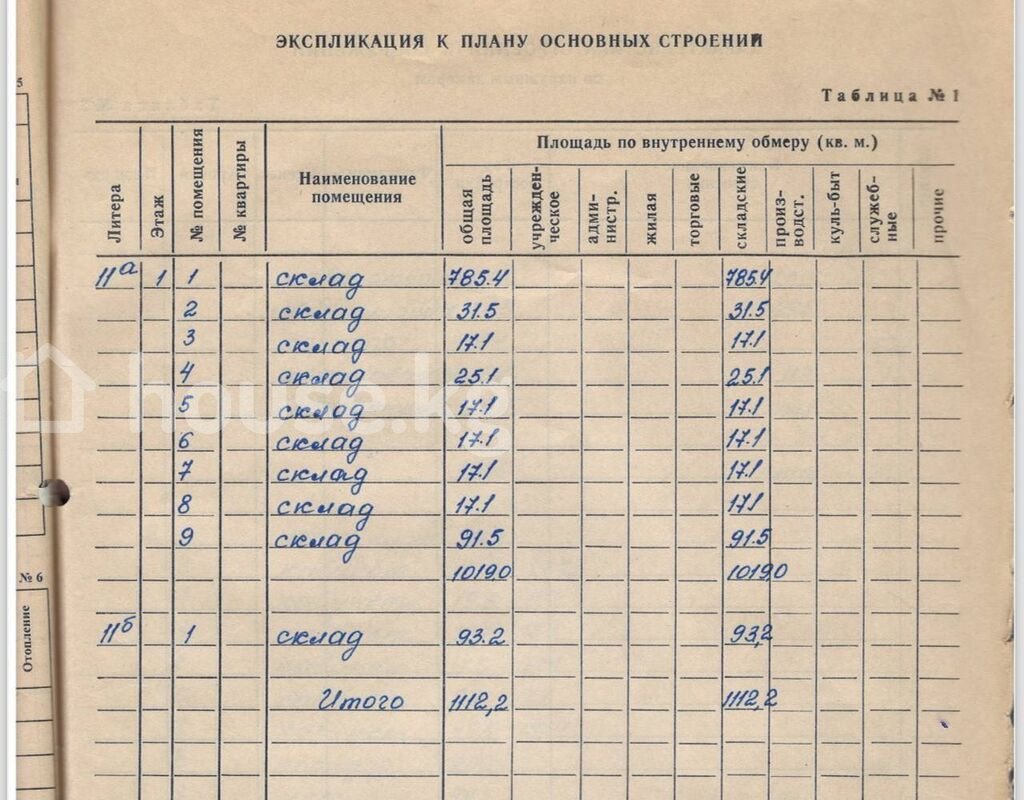 ЭКСПЛИКАЦИЯ К ПЛАНУ ОСНОВНЫХ СТРОЕНИЙ
Таблица № 1
Литера Этаж № помещения № квартиры Наименование помещения Площадь по внутреннему обмеру (кв. м.)
общая площадь учрежден-ческое адми-нистр. жилая торговые складские произ-водст. куль-быт служеб-ные прочие
11а 1 1 склад 785.4 785.4
2 склад 31.5 31.5
3 склад 17.1 17.1
4 склад 25.1 25.1
5 склад 17.1 17.1
6 склад 17.1 17.1
7 склад 17.1 17.1
8 склад 17.1 171
9 склад 91.5 91.5
1019.0 1019.0
11б 1 склад 93.2 93,2
Итого 1112,2 1112,2
5
№ 6
Отопление
house.kg